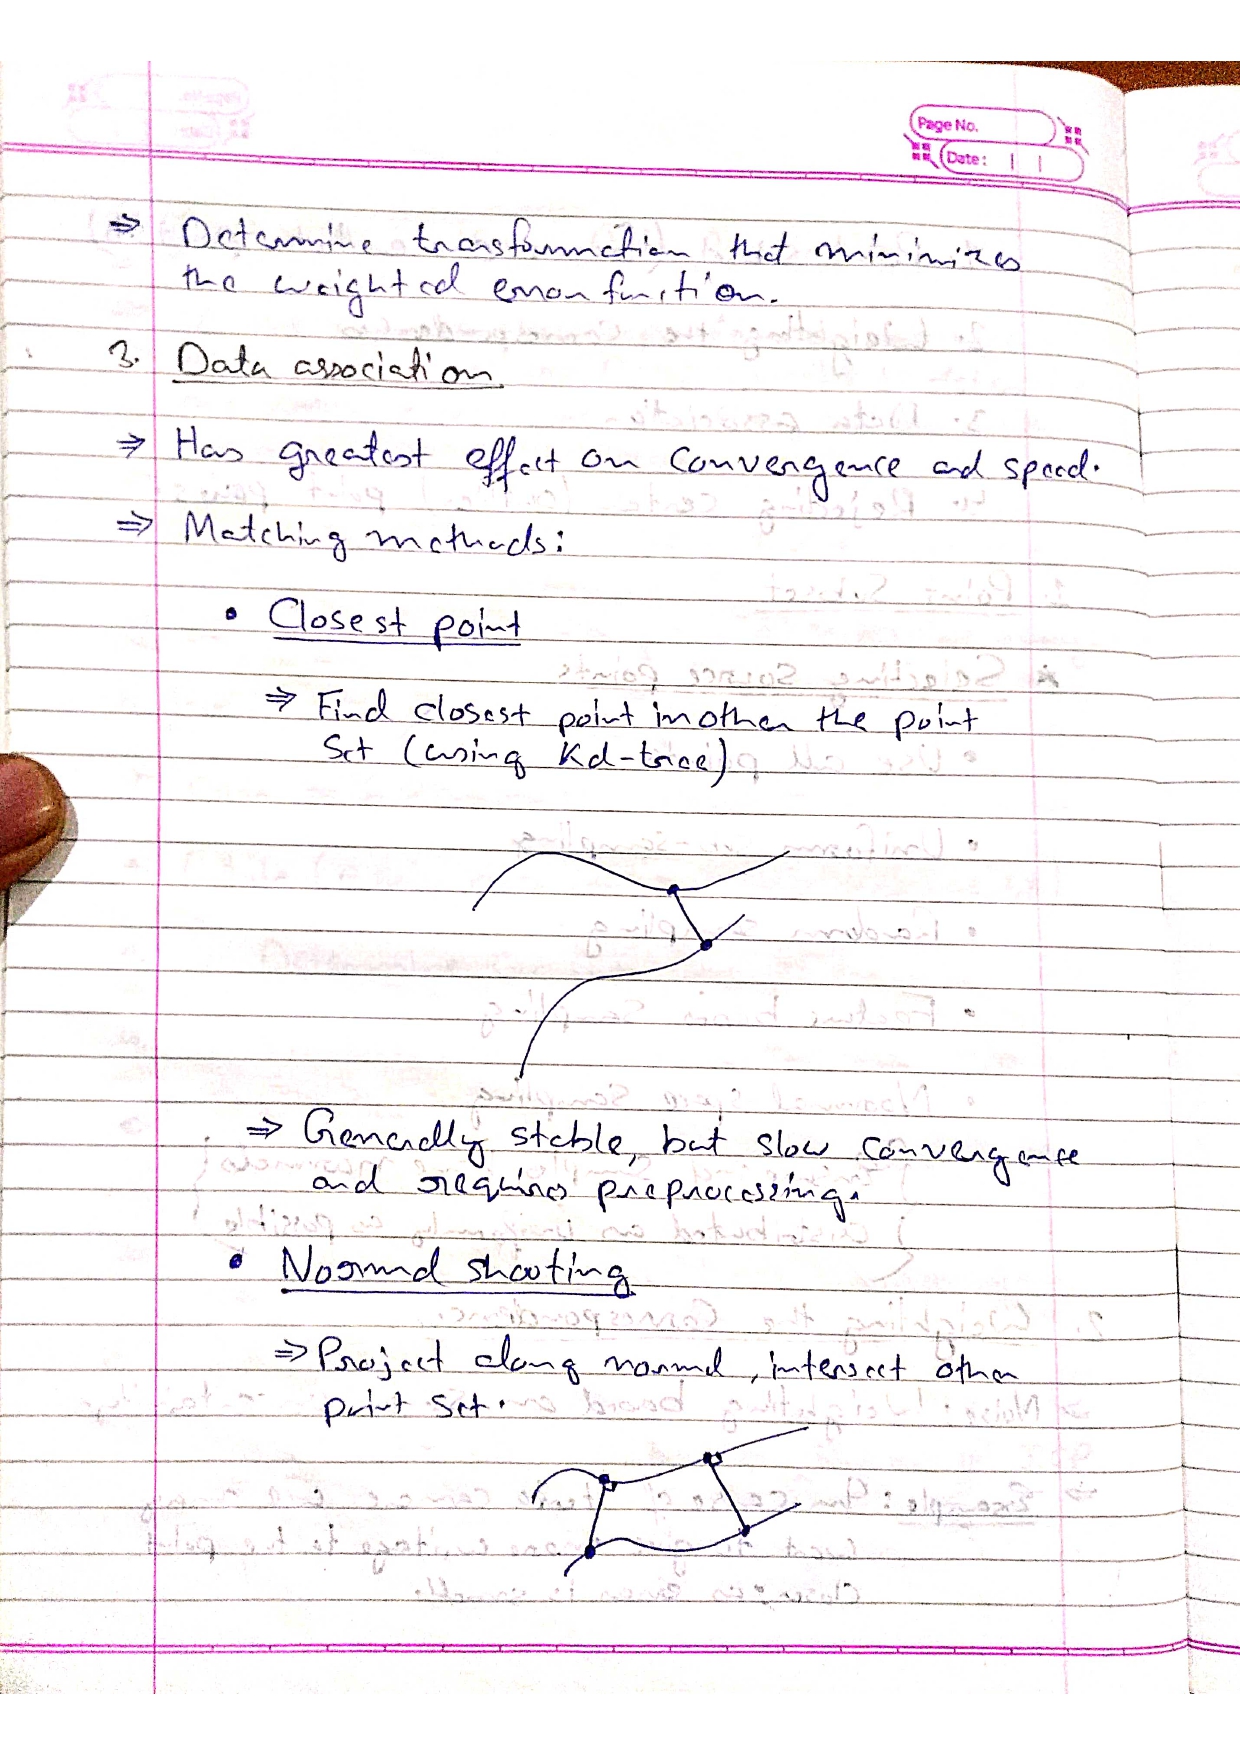 Page No.
Date:
⇒ Determine transformation that minimizes
the weighted error function.
3. Data association.
⇒ Has greatest effect on convergence and speed.
⇒ Matching methods:
• Closest point
⇒ Find closest point in other the point
Set (using Kd-tree)
⇒ Generally stable, but slow convergence
and requires preprocessing.
• Normal shooting
⇒ Project along normal, intersect other
point set.